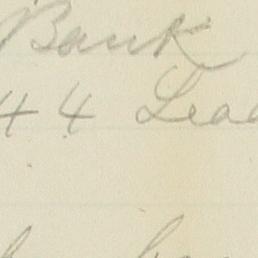 Bank
44 Lead